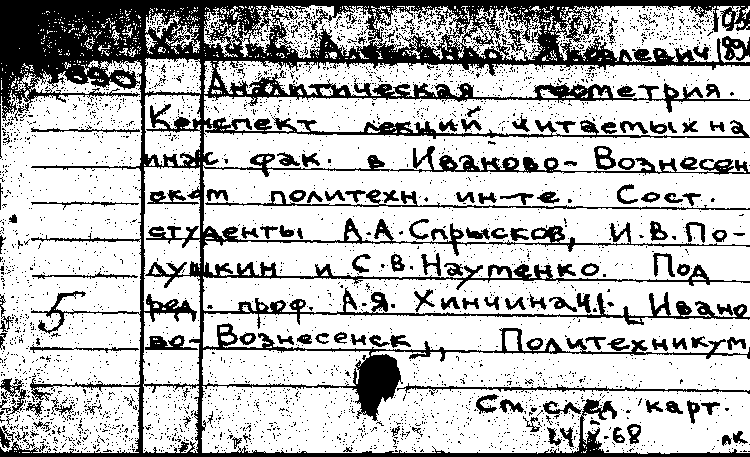 Хинчин, Александр Яковлевич, 189
1690
Аналитическая геометрия.
Конспект лекций, читаемых на
инж. фак. в Иваново-Вознесен
ском политехн. ин-те. Сост.
студенты А.А.Спрысков, И.В.По-
лушкин и С.В.Науменко. Под
5 ред. проф. А.Я. Хинчина. Ч.1. Ивано
во-Вознесенск, Политехникум,
См. след. карт.
24 X-68 лк